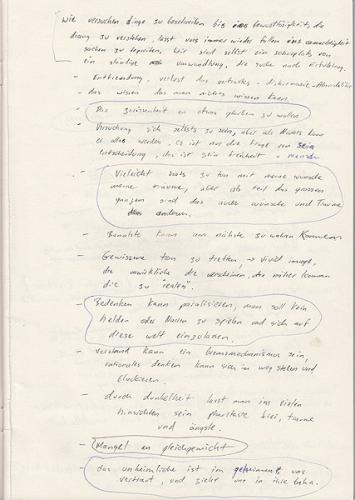 wir versuchen dinge zu beschreiben bis ins
drang zu verstehen, lasst uns immer wieder fallen ins
suchen zu begreifen, wir sind selbst ein schauplatz von
ein ständige umwandlung, die suche nach
- Entfremdung, verlust des
- das wissen das man nichts wissen kann
- Die gelassenheit an etwas glauben zu wollen
- Versuchung sich selbst zu sein, aber als Nichts kann
es alles werden, es ist nur die frage von sein
entscheidung, das ist sein freiheit - mensch
- Vielleicht hats zu tun mit meine wünsche
meine träume, aber als teil des grossen
ganzen sind das auch wünsche und Träume
der anderen.
- kann am nächste zu wahren kommen
- Gewissene ton zu treffen → vivid image,
die künstliche die verscheinen, der näher kommen
die zu "realen".
- Bedenken kann paralisieren, man soll kein
helden oder Narren zu spielen und sich auf
diese welt einzulassen.
- verstand kann ein bremsmechanismus sein,
rationales denken kann sich im weg stehen und
blockieren.
- durch dunkelheit lasst man in vielen
hinsichten sein phantasie frei, träume
und ängste.
- Mangel an gleichgewicht
- das unheimliche ist im geheimen, uns
vertraut, und zieht uns in ihre bahn.